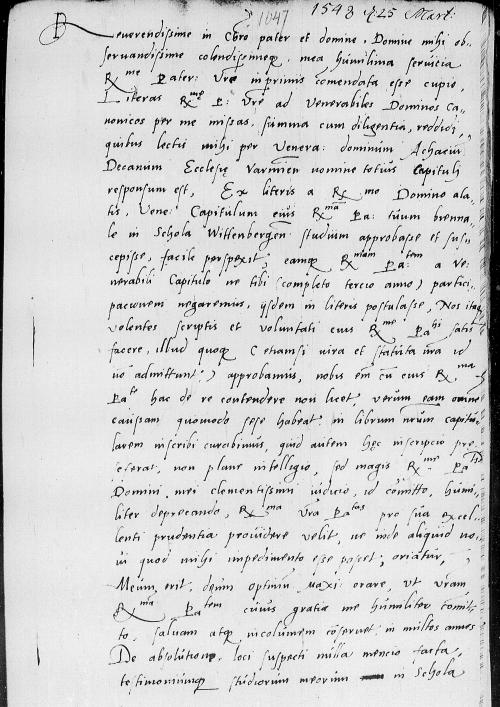 1047
1548 25 Mart:
Reverendissime in Chro pater et domine, Domine mihi ob-
servandissime colendissimeque. mea humilima servicia
Rme Pater: Vre inprimis comendata esse cupio,
Literas Rme P: Vre ad Venerabiles Dominos Ca-
nonicos per me missas, summa cum diligentia, reddidi,
quibus lectis mihi per Venera: dominum Achacium
Decanum Ecclesię Varmien nomine totius Capituli
responsum est, Ex literis a Rmo Domino ala-
tis, Vene: Capitulum eius Rma Pa: tuum bienna-
le in Schola Wittenbergen studium approbasse et sus-
cepisse, facile perspexit, eamque Rmam Patem a Ve-
nerabili Capitulo ne tibi (completo tercio anno) partici-
pacionem negaremus, ijsdem in literis postulasse, Nos itaque
volentes scriptis et voluntati eius Rme Patis satis-
facere, illud quoque (etiamsi iura et statuta nra id
no admittunt) approbamus, nobis em cu eius Rma
Pate hac de re contendere non licet, verum eam omnem
caussam quomodo sese habeat in librum nrum capitu-
larem inscribi curabimus, quid autem hęc inscripcio pre
seferat, non plane intelligio, sed magis Rme Patis
Domini mei clementissimi iudicio, id comitto, humi-
liter deprecando, Rma Vra Patas pro sua excel-
lenti prudentia providere velit, ne inde aliquid no-
vi quod mihi impedimento esse posset, oriatur,
Meum erit, deum optimu maxi: orare, ut Vram
Rma Patem cuius gratię me humiliter comit-
to, salvam atque incolumem coservet, in multos annos
De absolutione, loci suspecti nulla mencio facta,
testimoniumque studiorum meorum in Schola